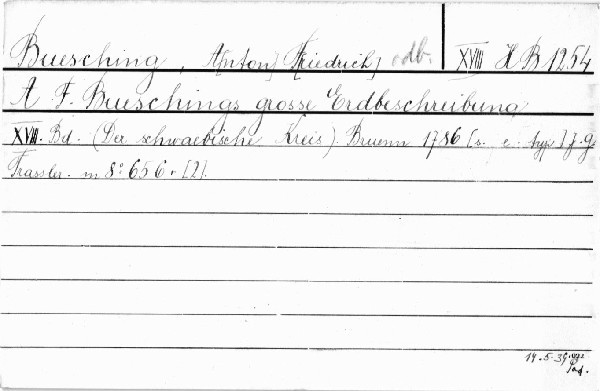 Buesching, A[nton] F[riedrich] odb. XVIII H B 1254
A. F. Bueschings grosse Erdbeschreibung
XVIII. Bd. (Der schwaebische Kreis). Bruenn 1786 [s. e. typ.] J. G.
Trassler. m 8° 656 + [2].
14.5.39